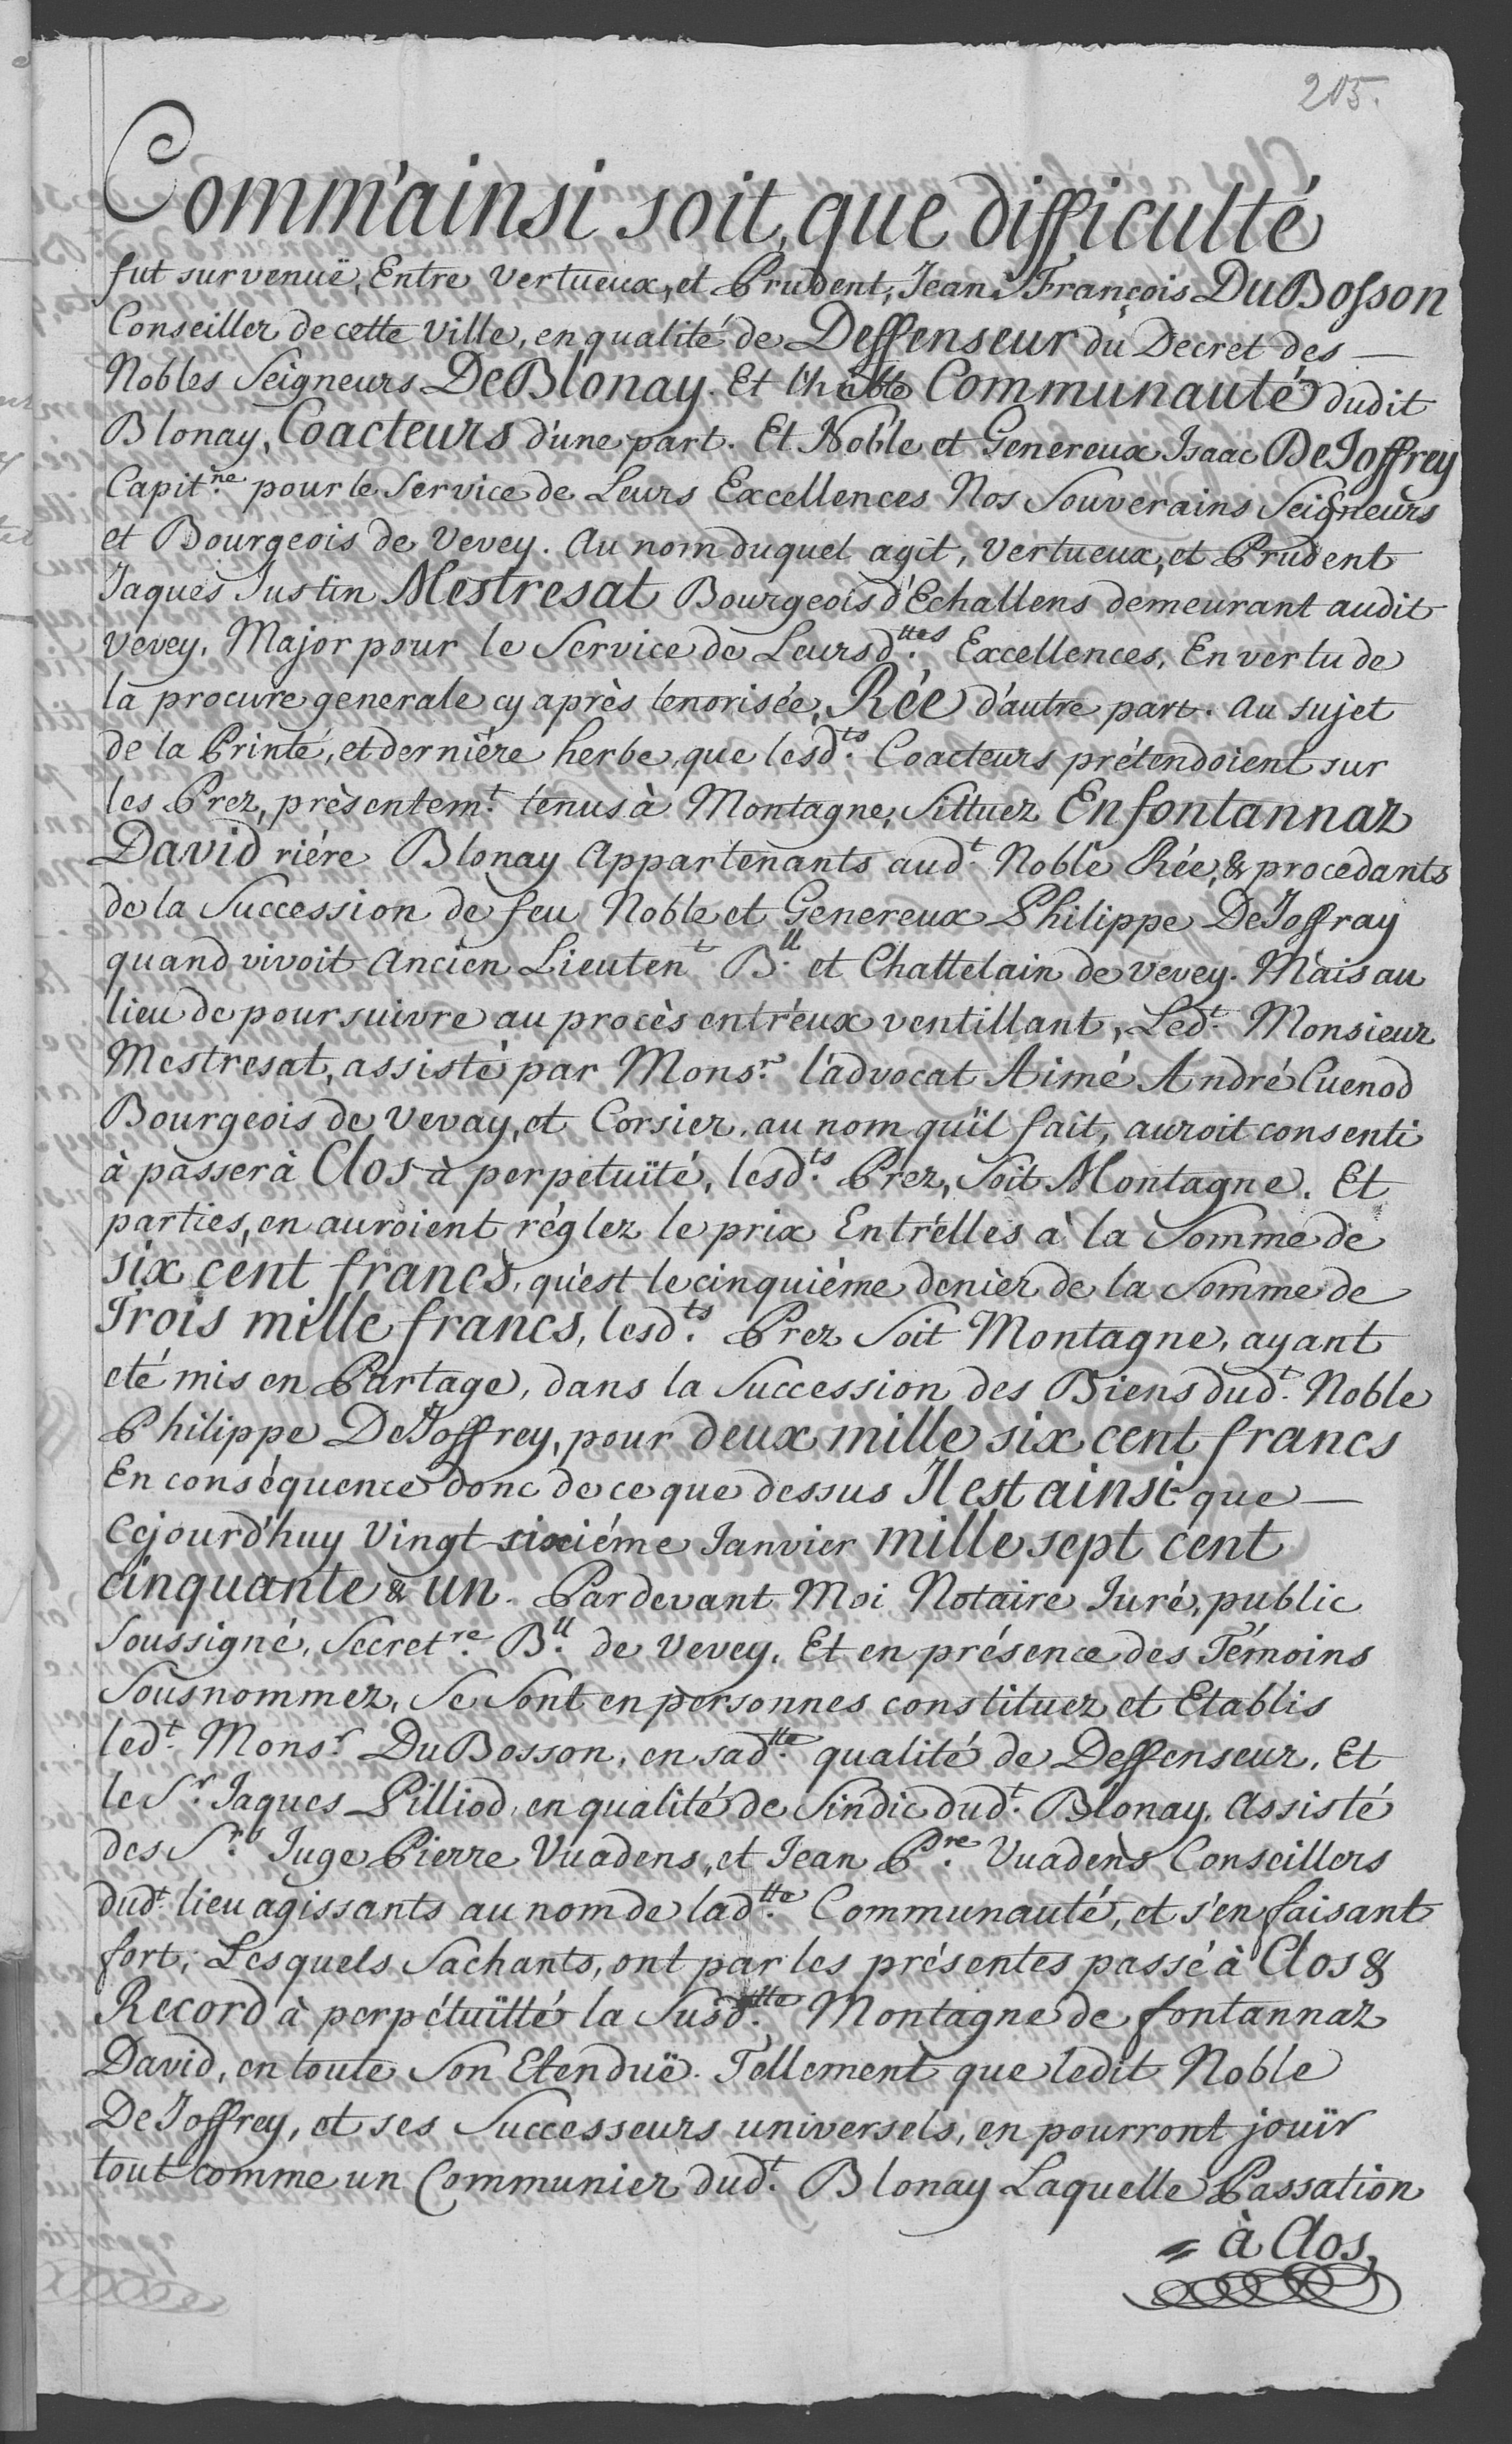 215.
Comm'ainsi soit, que difficulté
fut survenuë, Entre Vertueux, et Prudent, Jean François DuBosson
Conseiller de cette Ville, en qualité de Deffenseur du Decret des —
Nobles Seigneurs DeBlonay. Et l'honble Communauté dudit
Blonay, Coacteurs d'une part. Et Noble et Genereux Isaac DeJoffrey
Capit.ne pour le Service de Leurs Excellences Nos Souverains Seigneurs
et Bourgeois de Vevey. Au nom duquel agit, Vertueux, et Prudent
Jaques Justin Mestresat Bourgeois d'Echallens demeurant audit
Vevey, Major pour le Service de Leursd.ttes Excellences, En vertu de
la procure generale cy après tenorisée, Rée d'autre part. Au sujet
de la Printé, et dernière herbe, que lesd.ts Coacteurs prétendoient sur
les Prez, présentem.t tenus à Montagne, Sittuez En fontannaz
David rière Blonay Appartenants aud.t Noble Rée, & procedants
de la Succession de feu Noble et Genereux Philippe DeJoffray
quand vivoit Ancien Lieuten.t B.ll et Chattelain de Vevey. Mais au
lieu de poursuivre au procès entr'eux ventillant, Led.t Monsieur
Mestresat, assisté par Mons.r l'advocat Aimé André Cuenod
Bourgeois de Vevay, et Corsier, au nom qu'il fait, auroit consenti
à passer à Clos à perpetuïté, lesd.ts Prez, Soit Montagne. Et
parties, en auroient réglez le prix Entr'elles à la Somme de
six cent francs, qu'est le cinquiéme denier de la Somme de
Trois mille francs, lesd.ts Prez Soit Montagne, ayant
eté mis en Partage, dans la Succession des Biens dud.t Noble
Philippe DeJoffrey, pour deux mille six cent francs
En conséquence donc de ce que dessus Il est ainsi que —
Cejourd'huy Vingt sixiéme Janvier mille sept cent
cinquante & un. Pardevant Moi Notaire Juré, public
Soussigné, Secret.re B.ll de Vevey, Et en présence des Témoins
Sousnommez, Se Sont en personnes constituez et Etablis
led.t Mons.r DuBosson, en sad.tte qualité de Deffenseur, Et
le S.r Jaques Pilliod, en qualité de Sindic dud.t Blonay, Assisté
des S.rs Juge Pierre Vuadens, et Jean P.re Vuadens Conseillers
dud.t lieu agissants au nom de lad.tte Communauté, et s'en faisant
fort; Lesquels Sachants, ont par les présentes passé à Clos &
Record à perpétuïtté la Susd.tte Montagne de fontannaz
David, en toute Son Etenduë. Tellement que ledit Noble
DeJoffrey, et ses Successeurs universels, en pourront jouïr
tout comme un Communier dud.t Blonay Laquelle Passation
= à Clos,